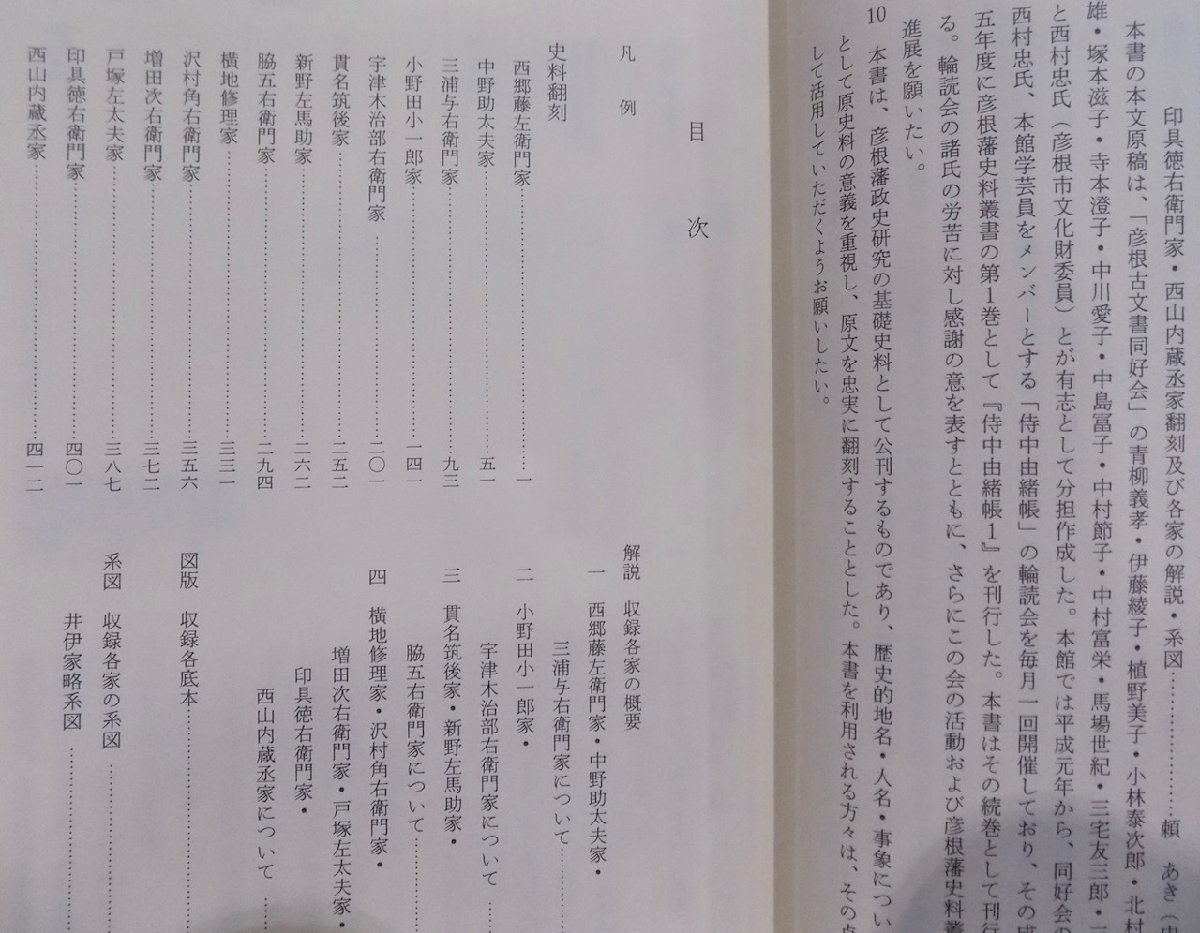 印具徳右衛門家・西山内蔵丞家翻刻及び各家の解説・系図……………頼　あき（
本書の本文原稿は、「彦根古文書同好会」の青柳義孝・伊藤綾子・植野美子・小林泰次郎・北村
雄・塚本滋子・寺本澄子・中川愛子・中島冨子・中村節子・中村富栄・馬場世紀・三宅友三郎・
と西村忠氏（彦根市文化財委員）とが有志として分担作成した。本館では平成元年から、同好会の
西村忠氏、本館学芸員をメンバーとする「侍中由緒帳」の輪読会を毎月一回開催しており、その成
五年度に彦根藩史料叢書の第1巻として『侍中由緒帳1』を刊行した。本書はその続巻として刊行
る。輪読会の諸氏の労苦に対し感謝の意を表すとともに、さらにこの会の活動および彦根藩史料叢
進展を願いたい。
10　本書は、彦根藩政史研究の基礎史料として公刊するものであり、歴史的地名・人名・事象につい
として原史料の意義を重視し、原文を忠実に翻刻することとした。本書を利用される方々は、その点
して活用していただくようお願いしたい。
目　次
凡　例
史料翻刻
西郷藤左衛門家……………一
中野助太夫家……………五一
三浦与右衛門家……………九三
小野田小一郎家……………一四一
宇津木治部右衛門家……………二〇一
貫名筑後家……………二五二
新野左馬助家……………二六二
脇五右衛門家……………二九四
横地修理家……………三三一
沢村角右衛門家……………三五六
増田次右衛門家……………三七二
戸塚左太夫家……………三八七
印具徳右衛門家……………四〇一
西山内蔵丞家……………四一二
解説　収録各家の概要
一　西郷藤左衛門家・中野助太夫家・
三浦与右衛門家について……………
二　小野田小一郎家・
宇津木治部右衛門家について……
三　貫名筑後家・新野左馬助家・
脇五右衛門家について……………
四　横地修理家・沢村角右衛門家・
増田次右衛門家・戸塚左太夫家・
印具徳右衛門家・
西山内蔵丞家について……
図版　収録各底本……………
系図　収録各家の系図……………
井伊家略系図……………